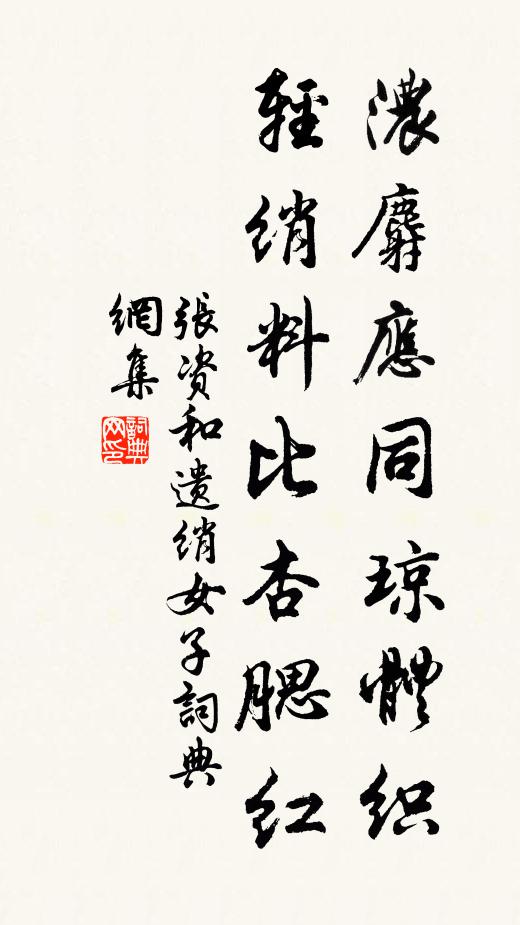 濃麝應同琼體织
輕綃料比杏腮紅
張資和遺綃女子詞典
網集
詞典
网印